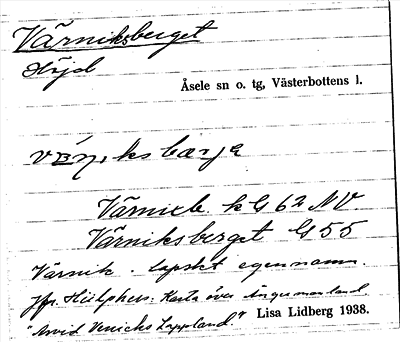 Värniksberget
Höjd
Åsele sn o. tg, Västerbottens l.
Värnick. kG 62 NV
Värniksberget G55
Värnik - lapskt egennamn.
Jfr. Hülphers: Karta över Ångermanland.
"Arvid Vernicks Lappland."
Lisa Lidberg 1938.